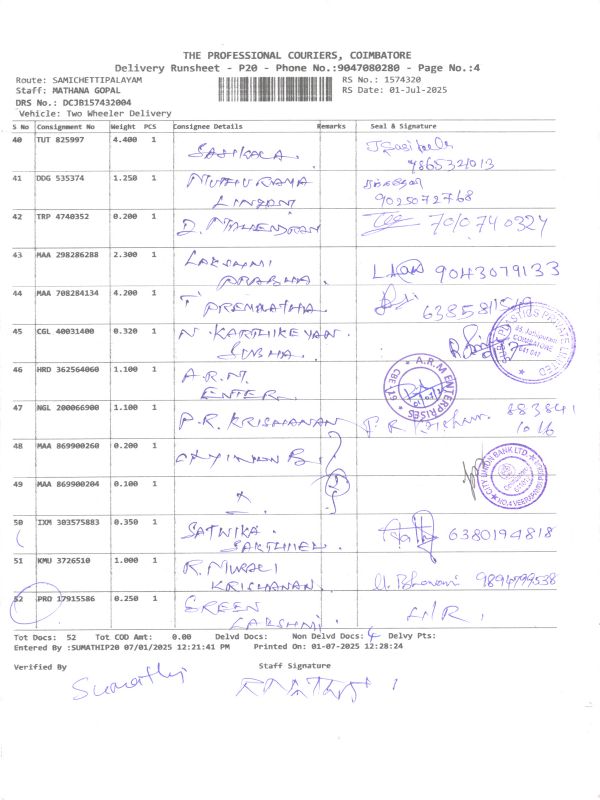 THE PROFESSIONAL COURIERS, COIMBATORE
Delivery Runsheet - P20 - Phone No.:9047080280 - Page No.:4
Route: SAMICHETTIPALAYAM RS No.: 1574320
Staff: MATHANA GOPAL RS Date: 01-Jul-2025
DRS No.: DCJB157432004
Vehicle: Two Wheeler Delivery
S No Consignment No Weight PCS Consignee Details Remarks Seal & Signature
40 TUT 825997 4.400 1 SASIKALA.
41 DDG 535374 1.250 1 MUTHU RAMA
LINGAM 9025072768
42 TRP 4740352 0.200 1 D. MAHENDRAN 7010740324
43 MAA 298286288 2.300 1 LAKSHMI
PRABHA. 9043079133
44 MAA 708284134 4.200 1 T PREMLATHA
45 CGL 40031400 0.320 1 N. KARTHIKEYAN.
COIMBATORE
46 HRD 362564060 1.100 1 A.R.M.
ENTER.
A.R.M ENTERPRISES
47 NGL 200066900 1.100 1 P.R. KRISHANAN P R 883841
1016
48 MAA 869900260 0.200 1
CITY UNION BANK LTD.
49 MAA 869900204 0.100 1
50 IXM 303575883 0.350 1 SATWIKA.
SAKTHIVEL. 6380194818
51 KMU 3726510 1.000 1 R. MURALI
KRISHANAN. 9894799538
52 PRO 17915586 0.250 1 GREEN
LAKSHMI. H/R.
Tot Docs: 52 Tot COD Amt: 0.00 Delvd Docs: Non Delvd Docs: 4 Delvy Pts:
Entered By :SUMATHIP20 07/01/2025 12:21:41 PM Printed On: 01-07-2025 12:28:24
Verified By Staff Signature
Sumathi